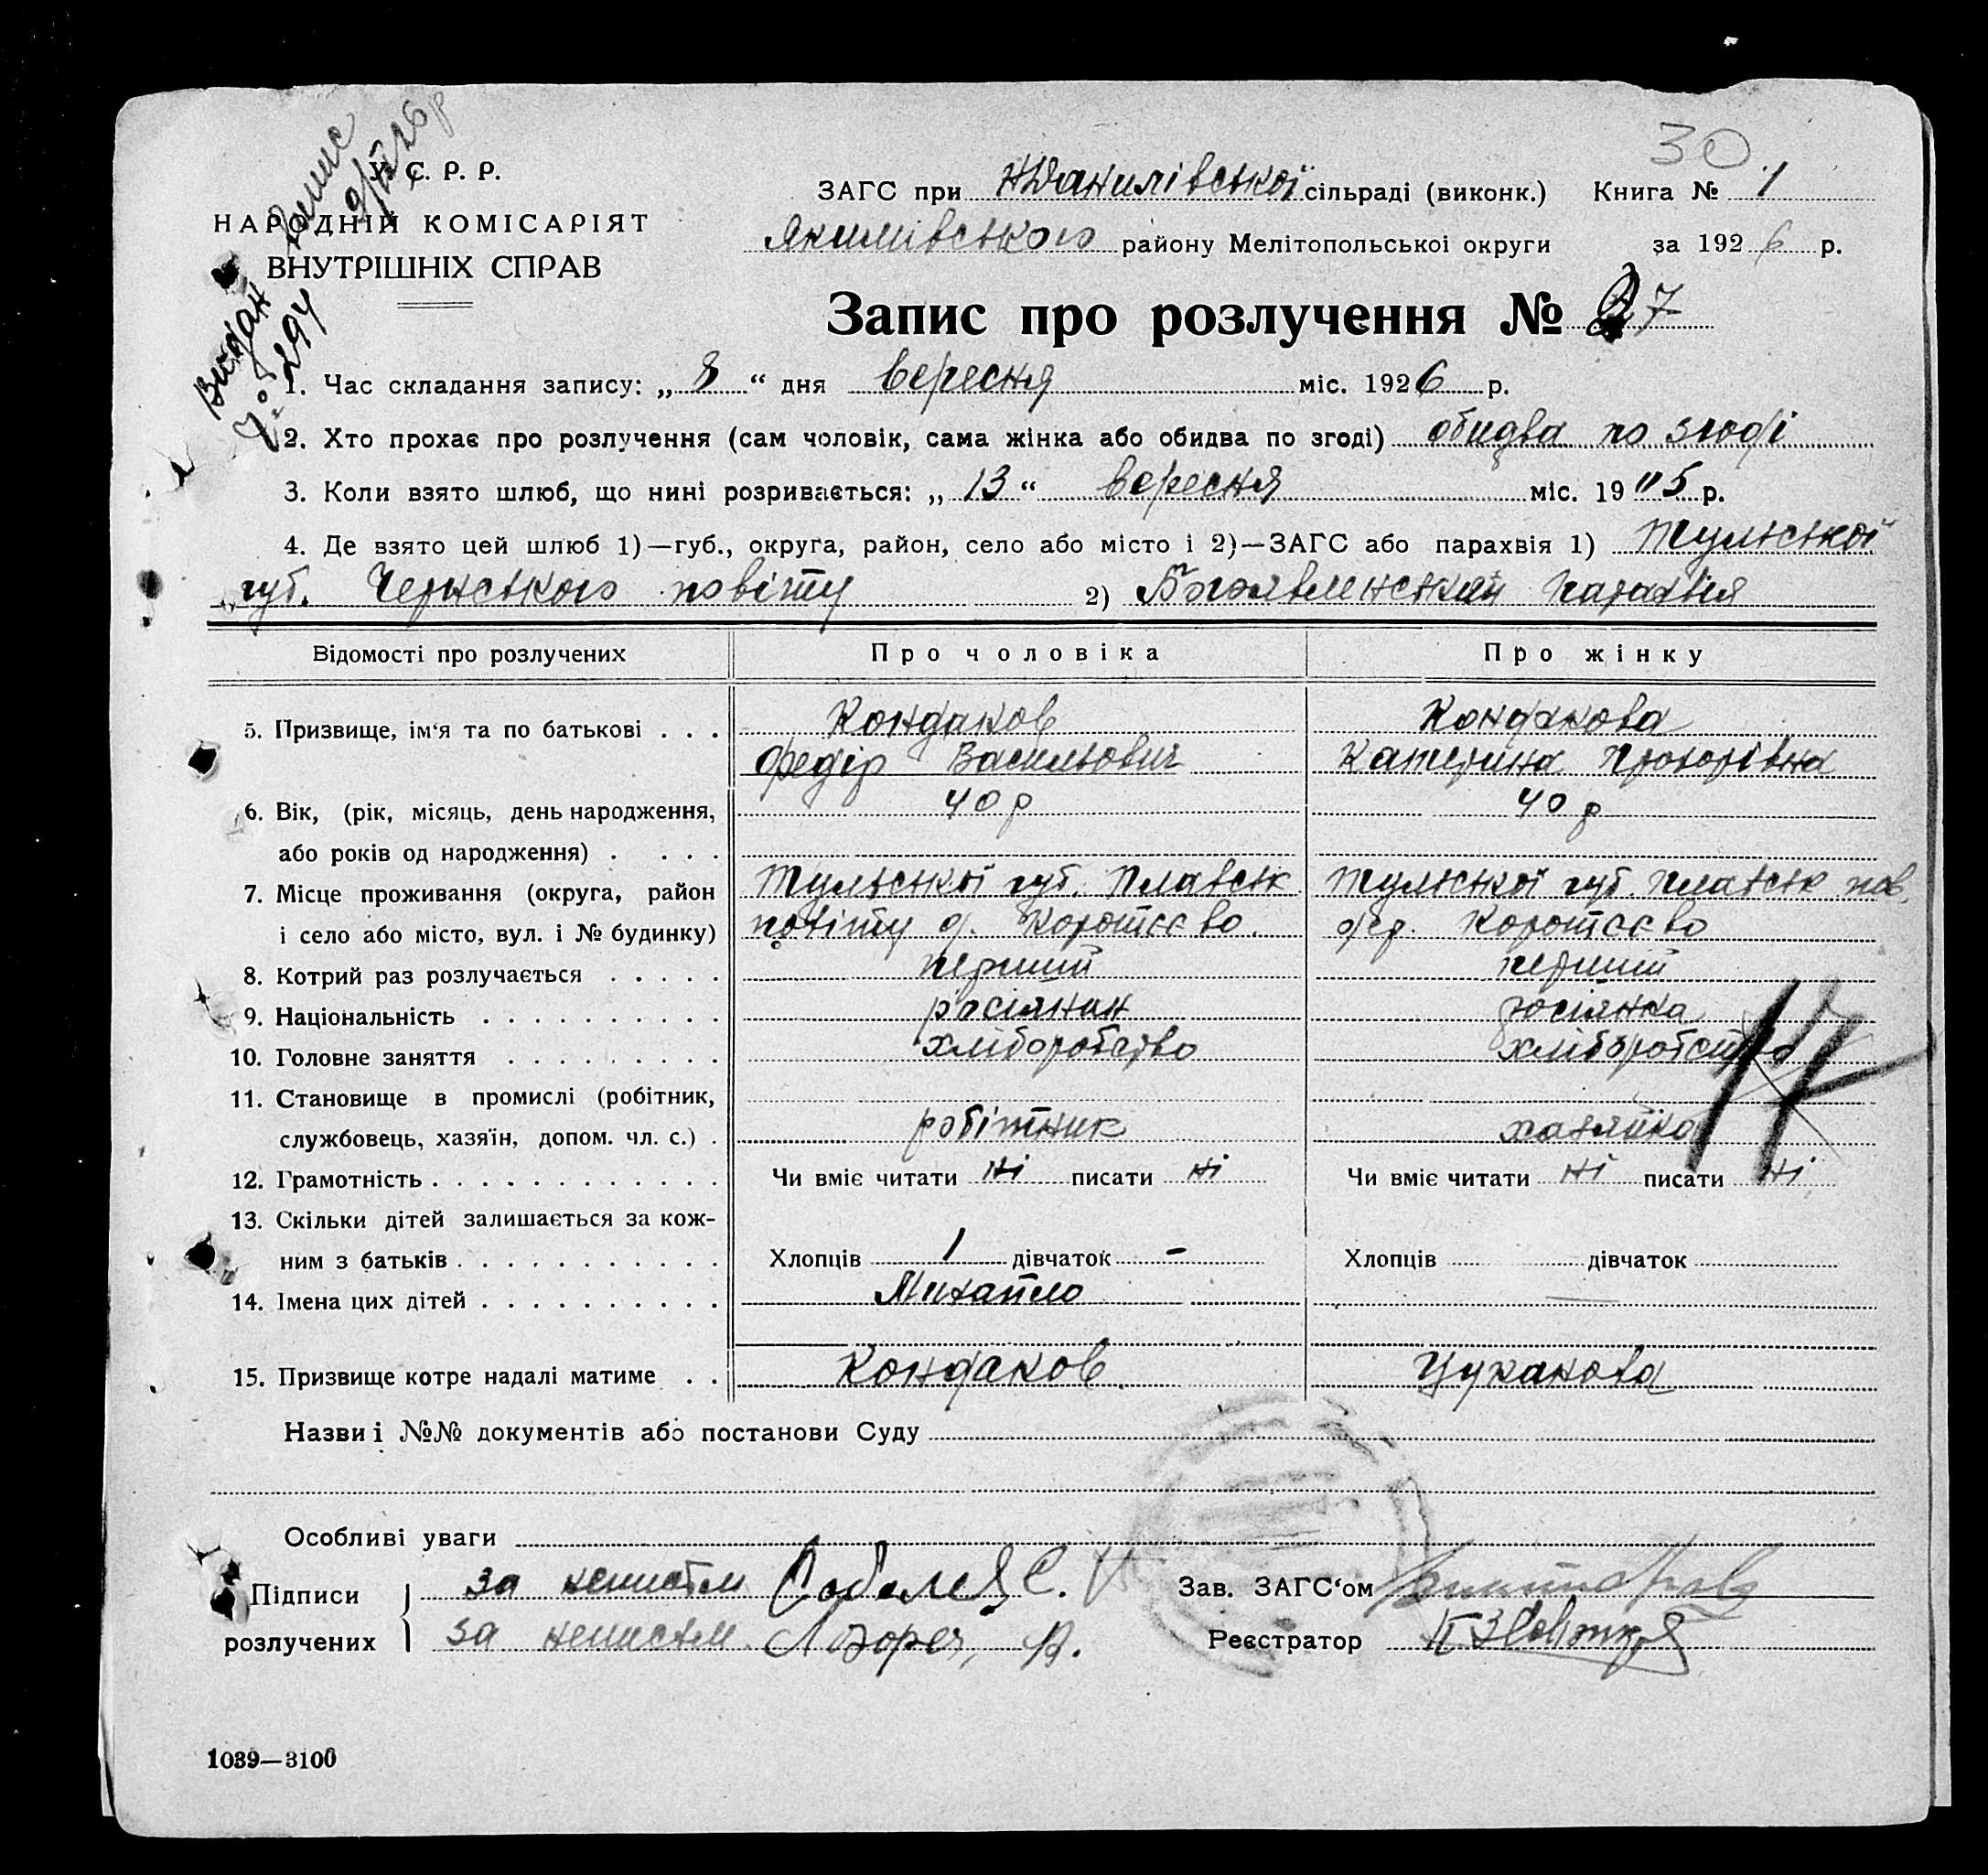 30
У. С. Р. Р.
НАРОДНІЙ КОМІСАРІЯТ
ВНУТРІШНІХ СПРАВ
Видан
№ 294
ЗАГС при НДанилівської сільраді (виконк.) Книга № 1
Якимівського району Мелітопольської округи за 1926 р.
Запис про розлучення № 27
1. Час складання запису: „ 8 “ дня вересня міс. 1926 р.
2. Хто прохає про розлучення (сам чоловік, сама жінка або обидва по згоді) обидва по згоді
3. Коли взято шлюб, що нині розривається: „ 13 “ вересня міс. 19 05 р.
4. Де взято цей шлюб 1)—губ., округа, район, село або місто і 2)—ЗАГС або парахвія 1) Тульської
губ. Чернського повіту 2) Богоявленський парахвія
Відомості про розлучених Про чоловіка Про жінку
5. Призвище, ім‘я та по батькові . . . Кондаков Кондакова
Федір Васильович Катерина Прохорівна
6. Вік, (рік, місяць, день народження, 40 р 40 р
або років од народження) . . . .
7. Місце проживання (округа, район Тульської губ. Плавськ Тульської губ. Плавськ пов.
і село або місто, вул. і № будинку) повіту д. Коротєєво. дер. Коротєєво
8. Котрий раз розлучається . . . . . перший перший
9. Національність . . . . . . . . . . росіянин росіянка
10. Головне заняття . . . . . . . . . хліборобство хліборобство
11. Становище в промислі (робітник,
службовець, хазяїн, допом. чл. с.) . робітник хазяйка
17
12. Грамотність . . . . . . . . . . . . . Чи вміє читати ні писати ні Чи вміє читати ні писати ні
13. Скільки дітей залишається за кож-
ним з батьків . . . . . . . . . . . . Хлопців 1 дівчаток - Хлопців дівчаток
14. Імена цих дітей . . . . . . . . . . Михайло —
15. Призвище котре надалі матиме . . Кондаков. Цуканова
Назви і №№ документів або постанови Суду
Особливі уваги
Підписи за неписьм Соболєв С. Зав. ЗАГС‘ом
розлучених за неписьм. Реєстратор
1039—3100